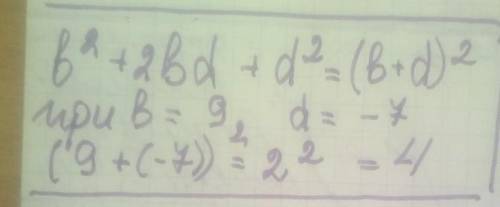 в² + 2вd + d² = (в+d)²
при в = 9, d = -7
(9 + (-7))² = 2² = 4